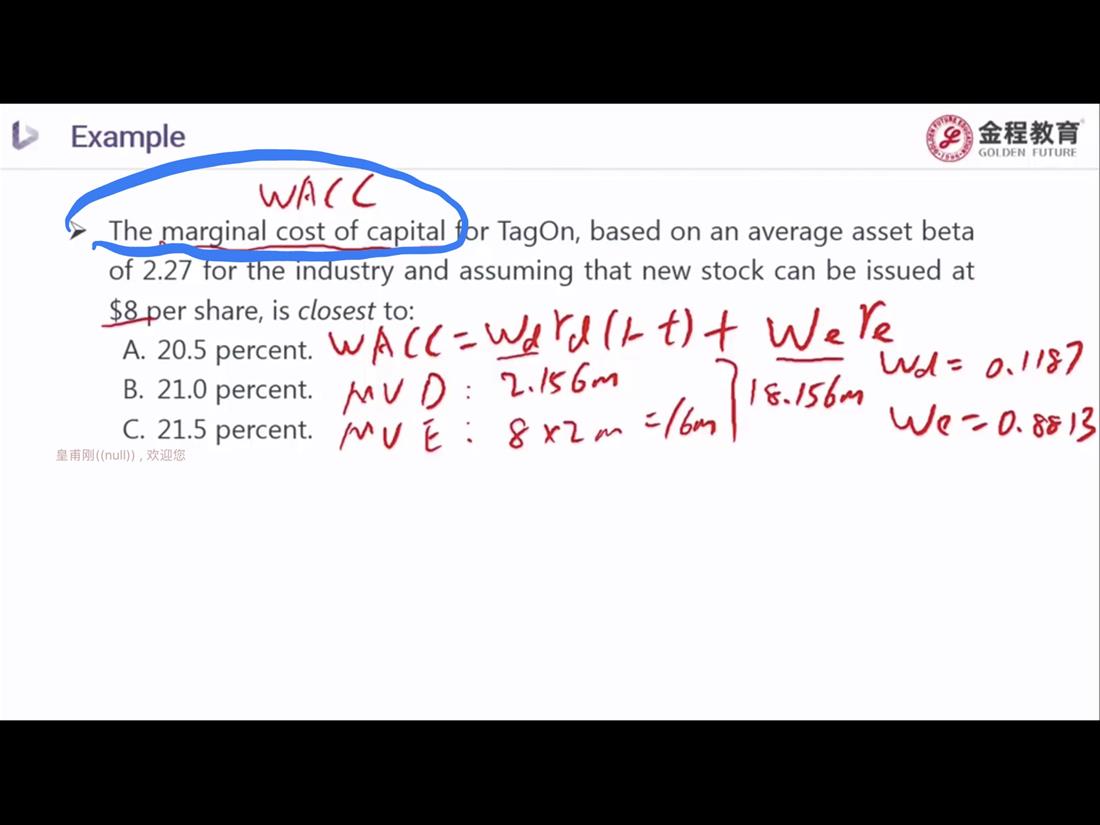 Example
金程教育
GOLDEN FUTURE
WACC
➤ The marginal cost of capital for TagOn, based on an average asset beta
of 2.27 for the industry and assuming that new stock can be issued at
$8 per share, is closest to:
A. 20.5 percent.
B. 21.0 percent.
C. 21.5 percent.
WACC = Wd rd (1-t) + We re
MVD : 2.156m
MVE : 8 x 2m = 16m
18.156m
Wd = 0.1187
We = 0.8813
皇甫刚((null)) , 欢迎您